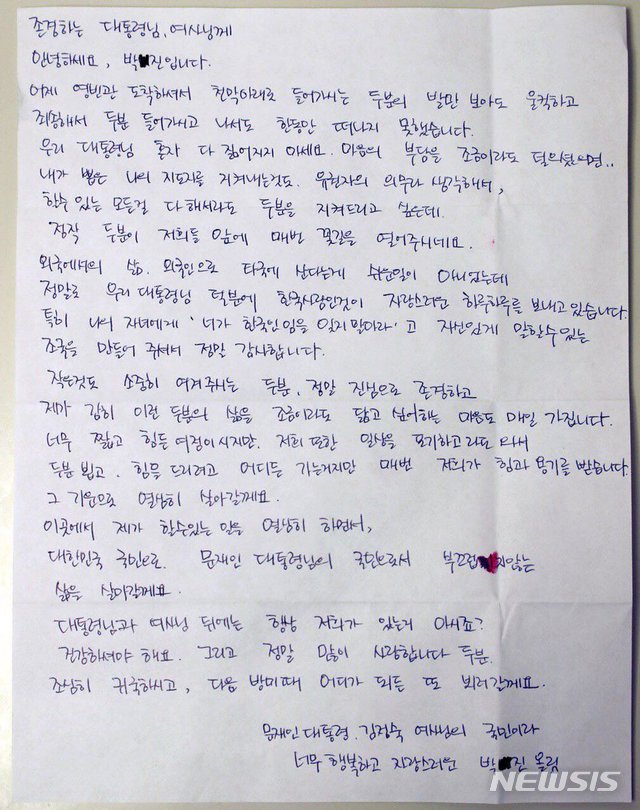 존경하는 대통령님, 여사님께
안녕하세요, 박 진입니다.
어제 영빈관 도착하셔서 천막아래로 들어가시는 두분의 발만 보아도 울컥하고
죄송해서 두분 들어가시고 나서도 한동안 떠나지 못했습니다.
우리 대통령님 혼자 다 짊어지지 마세요. 마음의 부담을 조금이라도 덜으셨으면..
내가 뽑은 나의 지도자를 지켜내는것도. 유권자의 의무라 생각해서,
할수 있는 모든걸 다 해서라도 두분을 지켜드리고 싶은데.
정작 두분이 저희들 앞에 매번 꽃길을 열어주시네요.
외국에서의 삶. 외국인으로 타국에 산다는게 쉬운일이 아니었는데
정말로 우리 대통령님 덕분에 한국사람인것이 자랑스러운 하루하루를 보내고 있습니다.
특히 나의 자녀에게 '너가 한국인임을 잊지말아라' 고 자신있게 말할수있는
조국을 만들어 주셔서 정말 감사합니다.
작은것도 소중히 여겨주시는 두분, 정말 진심으로 존경하고
제가 감히 이런 두분의 삶을 조금이라도 닮고 싶어하는 마음도 매일 가집니다.
너무 짧고 힘든 여정이시지만. 저희 또한 일상을 포기하고라도 와서
두분 뵙고. 힘을 드리려고 어디든 가는거지만 매번 저희가 힘과 용기를 받습니다.
그 기운으로 열심히 살아갈께요.
이곳에서 제가 할수있는 일을 열심히 하면서,
대한민국 국민으로. 문재인 대통령님의 국민으로서 부끄럽지않는
삶을 살아갈께요.
대통령님과 여사님 뒤에는 항상 저희가 있는거 아시죠?
건강하셔야 해요. 그리고 정말 많이 사랑합니다 두분.
조심히 귀국하시고, 다음 방미때 어디가 되든 또 뵈러갈께요.
문재인 대통령. 김정숙 여사님의 국민이라
너무 행복하고 자랑스러운 박 진 올림
NEWSIS